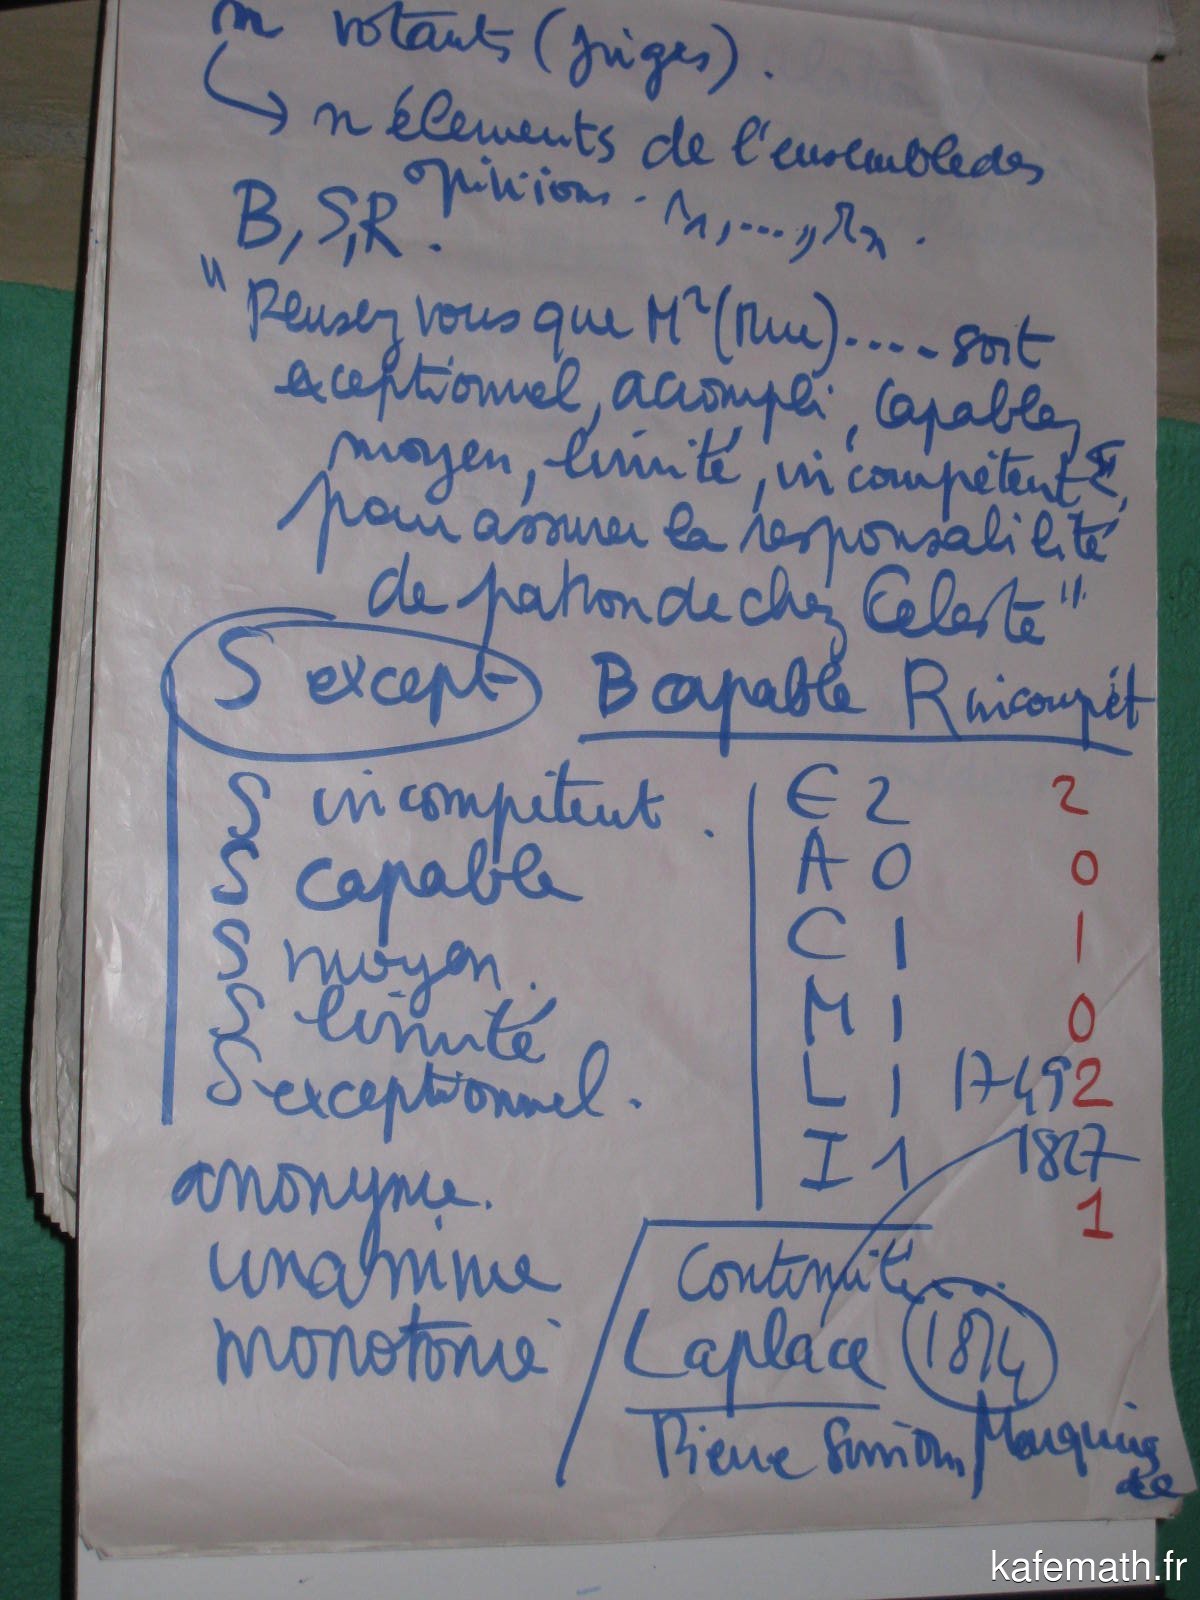 m votants (juges).
n éléments de l'ensemble des
opinions. r1, ..., rn.
B, S, R.
"Pensez vous que Mr (Mme) .... soit
exceptionnel, accompli, capable,
moyen, limité, incompétent
pour assurer la responsabilité
de patron de chez Celeste"
S except B capable R incompét
S incompétent.
S capable
S moyen.
S limité
S exceptionnel.
E 2 2
A 0 0
C 1 1
M 1 0
L 1 2
I 1 1
1749
1827
anonyme.
unanime
monotonie
Continuité
Laplace 1814
Pierre Simon Marquis
de
kafemath.fr